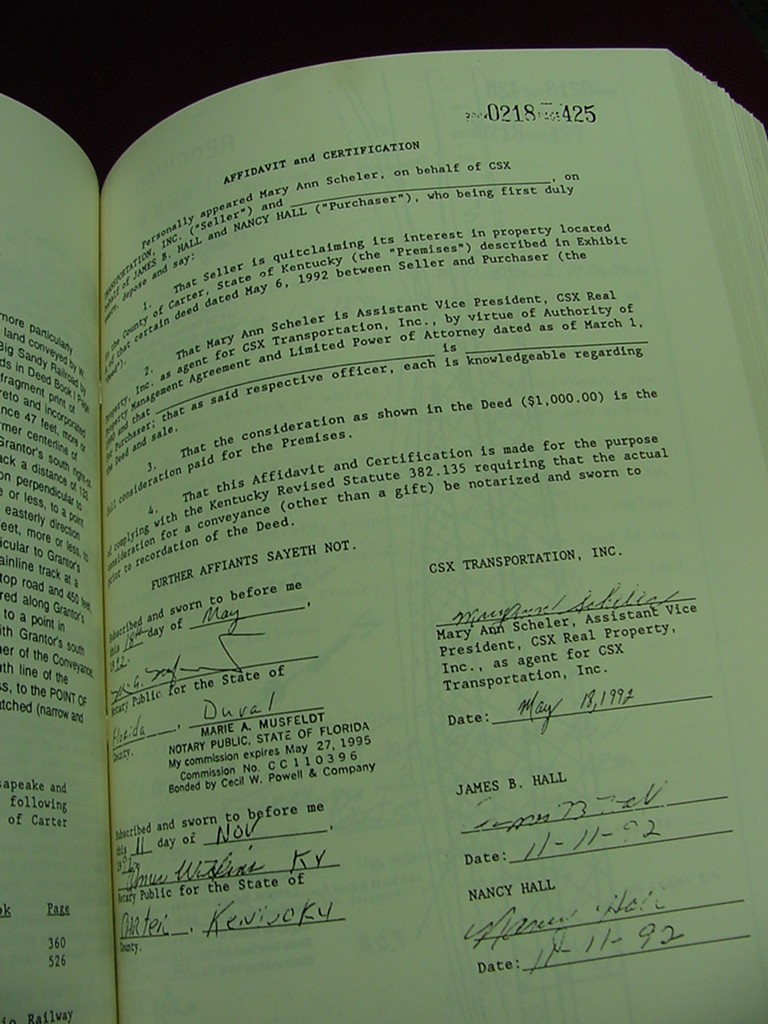 more particularly
land conveyed by W.
Big Sandy Railroad by
ds in Deed Book I Page
fragment print of
reto and incorporated
nce 47 feet, more or
rmer centerline of
Grantor's south right-of-
ack a distance of
on perpendicular to
e or less, to a point
easterly direction
feet, more or less, to
icular to Grantor's
ainline track at a
top road and 450 feet,
red along Grantor's
to a point in
ith Grantor's south
er of the Conveyance
uth line of the
s, to the POINT OF
atched (narrow and
sapeake and
following
of Carter
ok Page
360
526
io Railway
0218 425
AFFIDAVIT and CERTIFICATION
Personally appeared Mary Ann Scheler, on behalf of CSX
TRANSPORTATION, INC. ("Seller") and , on
behalf of JAMES B. HALL and NANCY HALL ("Purchaser"), who being first duly
sworn, depose and say:
1. That Seller is quitclaiming its interest in property located
in the County of Carter, State of Kentucky (the "Premises") described in Exhibit
A of that certain deed dated May 6, 1992 between Seller and Purchaser (the
"Deed").
2. That Mary Ann Scheler is Assistant Vice President, CSX Real
Property, Inc. as agent for CSX Transportation, Inc., by virtue of Authority of
Property Management Agreement and Limited Power of Attorney dated as of March 1,
and that is
Purchaser; that as said respective officer, each is knowledgeable regarding
the Deed and sale.
3. That the consideration as shown in the Deed ($1,000.00) is the
full consideration paid for the Premises.
4. That this Affidavit and Certification is made for the purpose
of complying with the Kentucky Revised Statute 382.135 requiring that the actual
consideration for a conveyance (other than a gift) be notarized and sworn to
prior to recordation of the Deed.
FURTHER AFFIANTS SAYETH NOT.
CSX TRANSPORTATION, INC.
Subscribed and sworn to before me
this 18th day of May,
1992.
Notary Public for the State of
Florida, Duval
County.
MARIE A. MUSFELDT
NOTARY PUBLIC, STATE OF FLORIDA
My commission expires May 27, 1995
Commission No. CC110396
Bonded by Cecil W. Powell & Company
Mary Ann Scheler
Mary Ann Scheler, Assistant Vice
President, CSX Real Property,
Inc., as agent for CSX
Transportation, Inc.
Date: May 18, 1992
Subscribed and sworn to before me
this 11 day of NOV,
1992.
KY
Notary Public for the State of
Carter, Kentucky
County.
JAMES B. HALL
James B. Hall
Date: 11-11-92
NANCY HALL
Nancy Hall
Date: 11-11-92